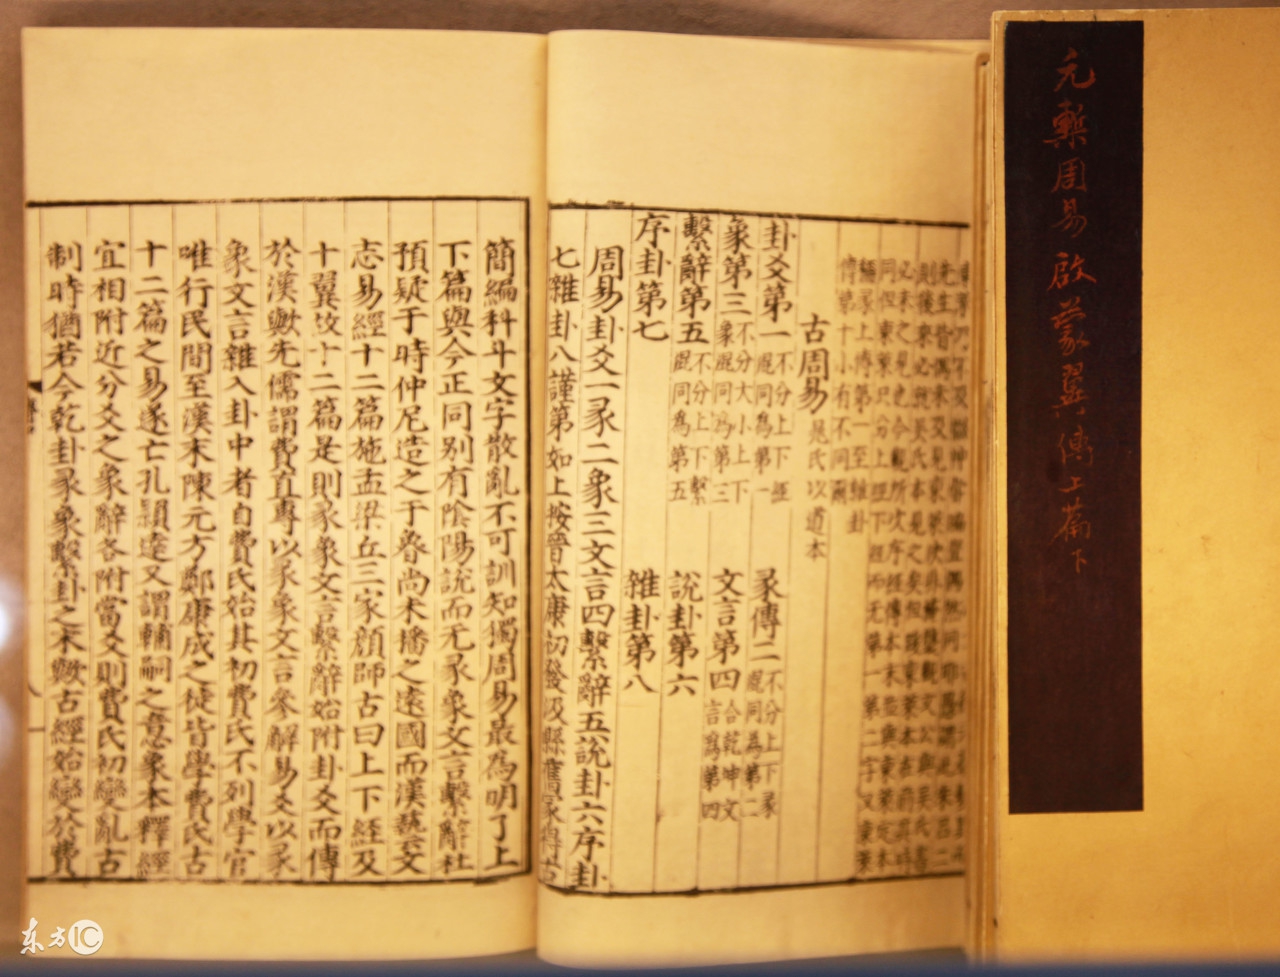 元槧周易啟蒙翼傳上篇下
同四東萊只分上經下經而无第一第二字又東萊
編彖上傳第一至雜卦
傳第十小有不同爾
古周易 晁氏以道本
卦爻第一 不分上下經混同為第一 彖傳二 不分上下彖混同為第二
象第三 不分大小上下象混同為第三 文言第四 合乾坤文言為第四
繫辭第五 不分上下繫混同為第五 說卦第六
序卦第七 雜卦第八
周易卦爻一彖二象三文言四繫辭五說卦六序卦
七雜卦八謹第如上按晉太康初發汲縣舊冢得古
簡編科斗文字散亂不可訓知獨周易最為明了上
下篇與今正同别有陰陽說而无彖象文言繫辭杜
預疑于時仲尼造之于魯尚未播之遠國而漢藝文
志易經十二篇施孟梁丘三家顔師古曰上下經及
十翼故十二篇是則彖象文言繫辭始附卦爻而傳
於漢歟先儒謂費直專以彖象文言參解易爻以彖
象文言雜入卦中者自費氏始其初費氏不列學官
唯行民間至漢末陳元方鄭康成之徒皆學費氏古
十二篇之易遂亡孔穎達又謂輔嗣之意象本釋經
宜相附近分爻之象辭各附當爻則費氏初變亂古
制時猶若今乾卦彖象繫卦之末歟古經始變於費
东方IC